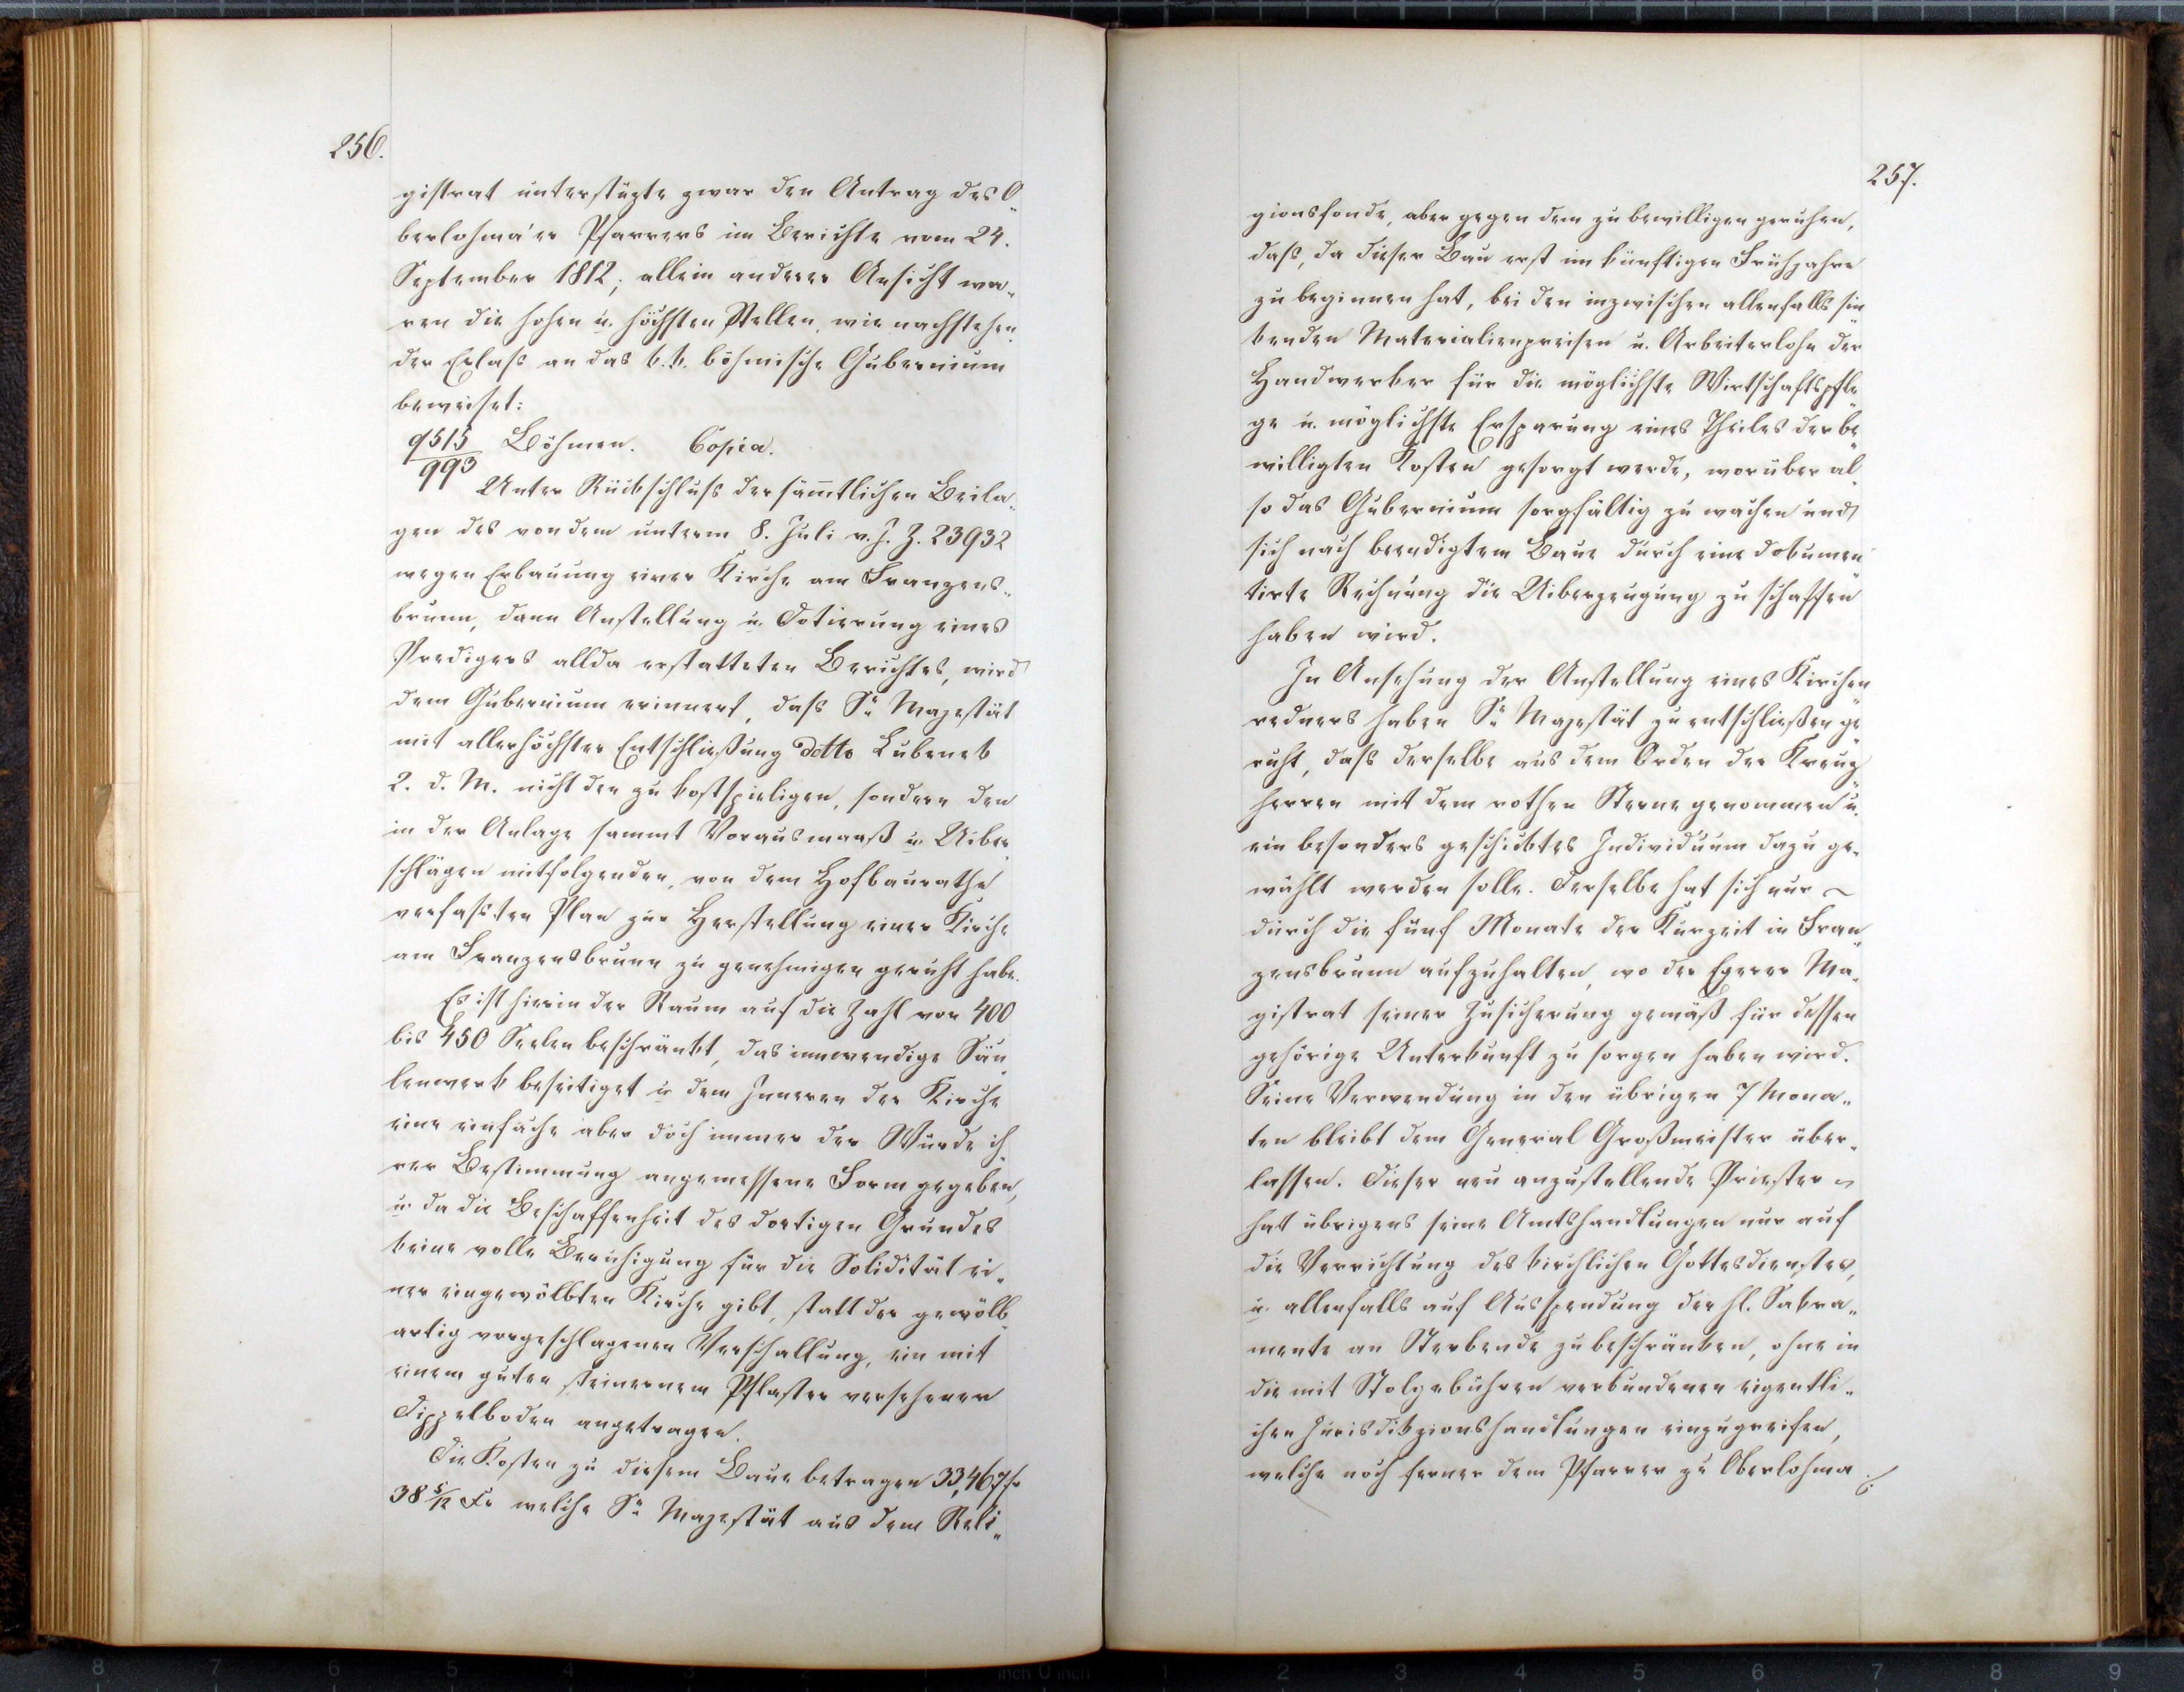 256.
gistrat unterstüzte zwar den Antrag des O„
berlohma'er Pfarrers im Berichte vom 24.
September 1812; allein anderer Ansicht wa„
ren die hohen u. höchsten Stellen, wie nachstehen„
der Erlaß an das k. k. böhmische Gubernium
beweiset:
9515/993 Böhmen. Copia.
Unter Rückschluß der sämtlichen Beila„
gen des von dem unterm 8. Juli v. J. Z. 23932
wegen Erbauung einer Kirche am Franzens„
brunn, dann Anstellung u. Dotierung eines
Predigers allda erstatteten Berichtes, wird
dem Gubernium erinnert, daß Se Majestät
mit allerhöchster Entschließung detto Lubenek
2. d. M. nicht den zu kostspieligen, sondern den
in der Anlage sammt Vorausmaaß u. Uiber„
schlägen mitfolgenden, von dem Hofbaurathe
verfaßten Plan zur Herstellung einer Kirche
am Franzensbrunn zu genehmigen geruht habe.
Es ist hierin der Raum auf die Zahl von 400
bis 450 Seelen beschränkt, das innwendige Säu„
lenwerk beseitiget u. dem Inneren der Kirche
eine einfache aber doch immer der Würde ih„
rer Bestimmung angemessene Form gegeben,
u. da die Beschaffenheit des dortigen Grundes
keine volle Beruhigung für die Solidität ei„
ner eingewölbten Kirche gibt, statt der gewölb„
artig vorgeschlagenen Verschallung, ein mit
einem guten steinernem Pflaster versehener
Dippelboden angetragen.
Die Kosten zu diesem Baue betragen 33,467 f
38 5/12 Xr welche Se Majestät aus dem Reli„
257.
gionsfonde, aber gegen dem zu bewilligen geruhen,
daß, da dieser Bau erst im künftigen Frühjahre
zu beginnen hat, bei den inzwischen allenfalls sin„
kenden Materialienpreisen u. Arbeiterlohn der
Handwerker für die möglichste Wirtschaftspfle„
ge u. möglichste Ersparung eines Theiles der be„
willigten Kosten gesorgt werde, worüber al„
so das Gubernium sorgfältig zu wachen und
sich nach beendigtem Baue durch eine dokumen„
tirte Rechnung die Uiberzeugung zu schaffen
haben wird.
In Ansehung der Anstellung eines Kirchen„
redners haben Se Majestät zu entschließen ge„
ruht, daß derselbe aus dem Orden der Kreuz„
herren mit dem rothen Sterne genommen u.
ein besonders geschicktes Individuum dazu ge„
wählt werden solle. Derselbe hat sich nur ~
durch die fünf Monate der Kurzeit in Fran„
zensbrunn aufzuhalten, wo der Egerer Ma„
gistrat seiner Zusicherung gemäß für dessen
gehörige Unterkunft zu sorgen haben wird.
Seine Verwendung in den übrigen 7 Mona„
ten bleibt dem General Großmeister über„
lassen. Dieser neu anzustellende Priester ~
hat übrigens seine Amtshandlungen nur auf
die Verrichtung des kirchlichen Gottesdienstes,
u. allenfalls auf Ausspendung der hl. Sakra„
mente an Sterbende zu beschränken, ohne in
die mit Stolgebühren verbundenen eigentli„
chen Jurisdikzionshandlungen einzugreifen,
welche noch ferner dem Pfarrer zu Oberlohma ./.